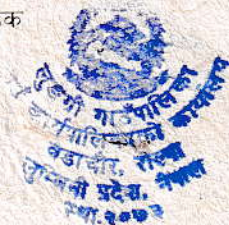 क
लुङग्री गाउँपालिका
गाउँ कार्यपालिकाको कार्यालय
वडाचौर, रोल्पा
लुम्बिनी प्रदेश, नेपाल
स्था.२०७३